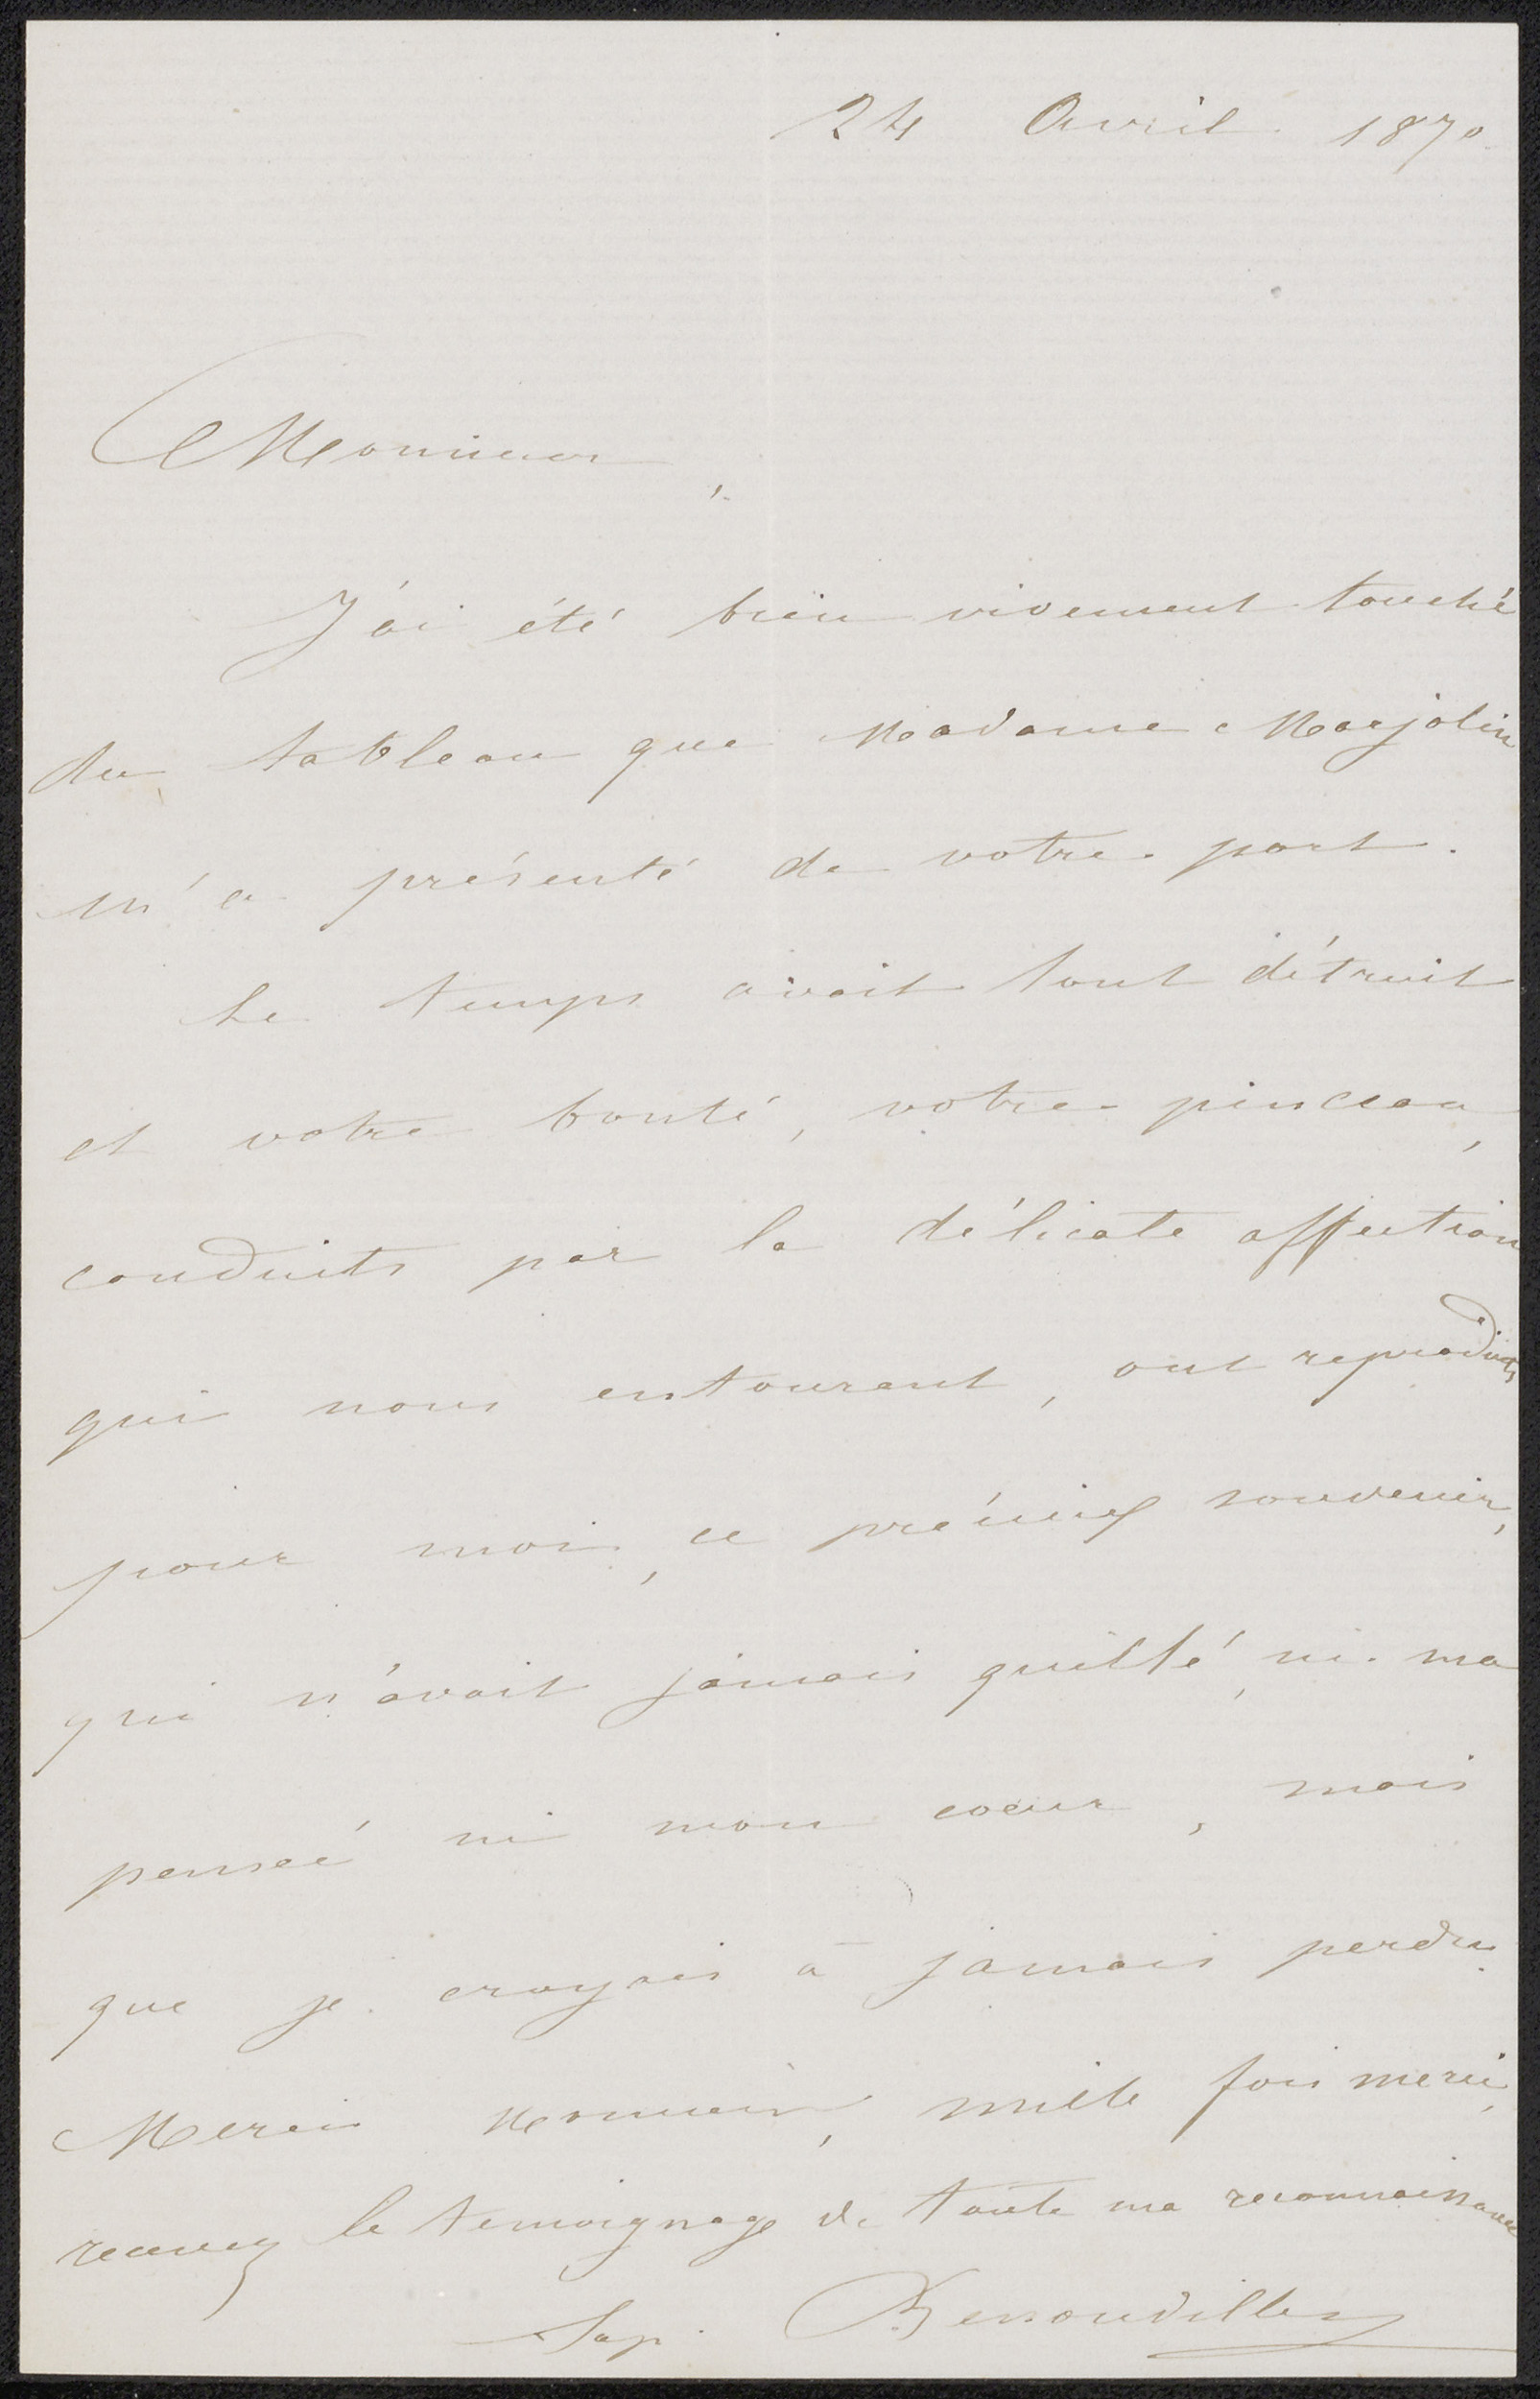 24 Avril 1870.
Monsieur,
J'ai été bien vivement touché
du tableau que Madame Marjolin
m'a présenté de votre part.
Le temps avait tout détruit
et votre bonté, votre pinceau,
conduits par la délicate affection
qui nous entourent, ont reproduits
pour moi, ce précieux souvenir,
qui n'avait jamais quitté, ni ma
pensée ni mon coeur, mais
que je croyais à jamais perdu.
Merci Monsieur, mille fois merci,
recevez le temoignage de toute ma reconnaissance
Sap. Benouville